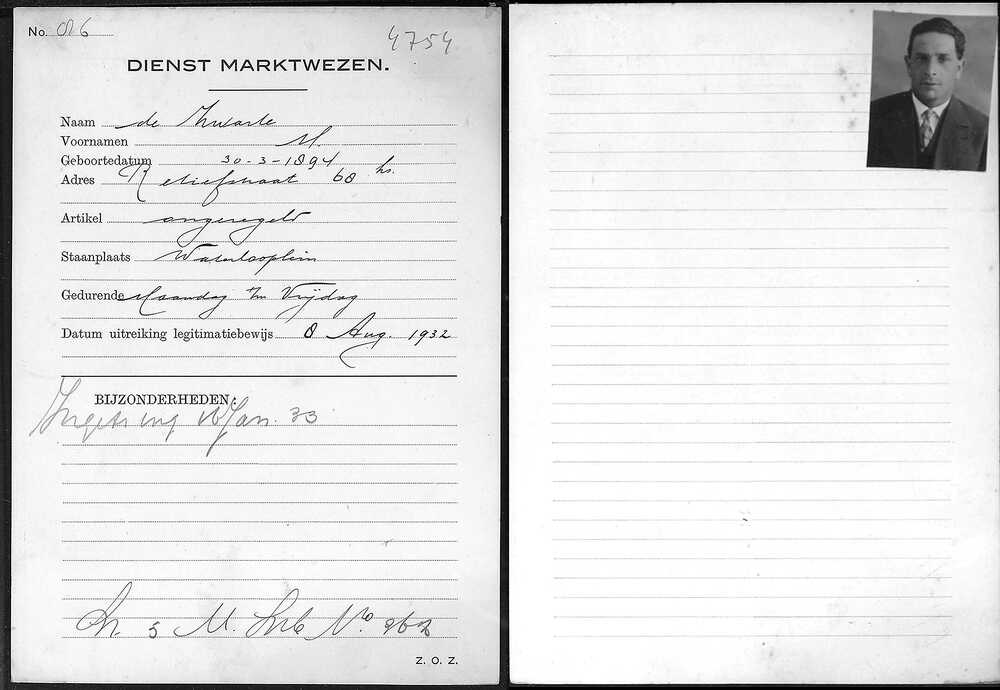 No. 86
4754
DIENST MARKTWEZEN.
Naam de Zwarte
Voornamen M.
Geboortedatum 30-3-1894
Adres Retiefstraat 68 hs.
Artikel ongeregeld
Staanplaats Waterlooplein
Gedurende Maandag t/m Vrijdag
Datum uitreiking legitimatiebewijs 8 Aug. 1932
BIJZONDERHEDEN:
Jan. 33
M. No. 
Z. O. Z.